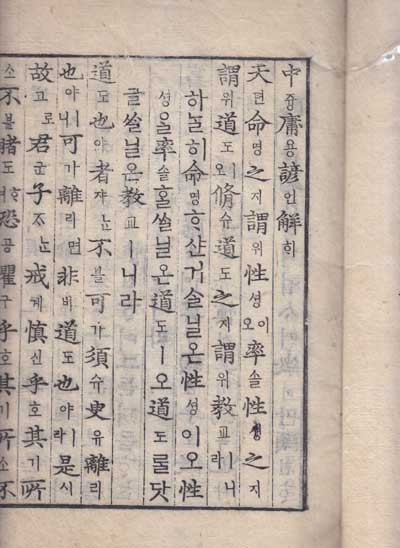 中듕庸용諺언解ᄒᆡ
天텬命명之지謂위性셩이오率솔性셩之지
謂위道도ㅣ오脩슈道도之지謂위敎교ㅣ니라
하ᄂᆞᆯ히命명ᄒᆞ샨거ᄉᆞᆯ닐온性셩이오性
셩을率솔ᄒᆞᆯᄡᆞᆯ닐온道도ㅣ오道도ᄅᆞᆯ닷
글ᄡᆞᆯ닐온敎교ㅣ니라
道도也야者쟈ᄂᆞᆫ不블可가須슈臾유離리
也야ㅣ니可가離리면非비道도也야ㅣ라是시
故고로君군子ᄌᆞᄂᆞᆫ戒계愼신乎호其기所
소不블睹도ᄒᆞ며恐공懼구乎호其기所소不